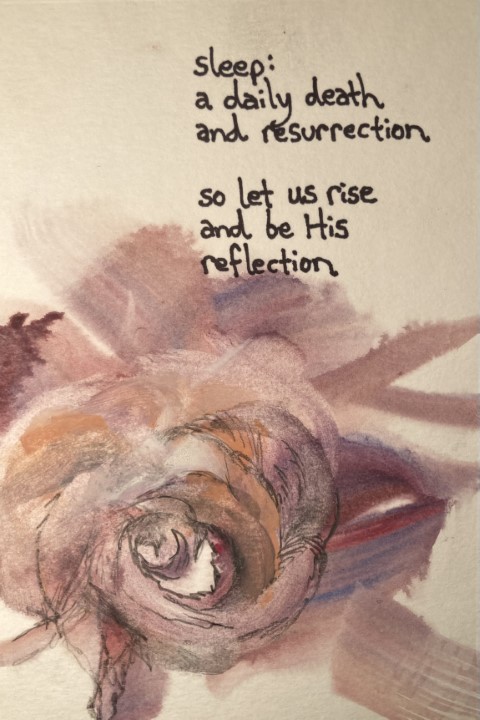 sleep:
a daily death
and resurrection
so let us rise
and be His
reflection